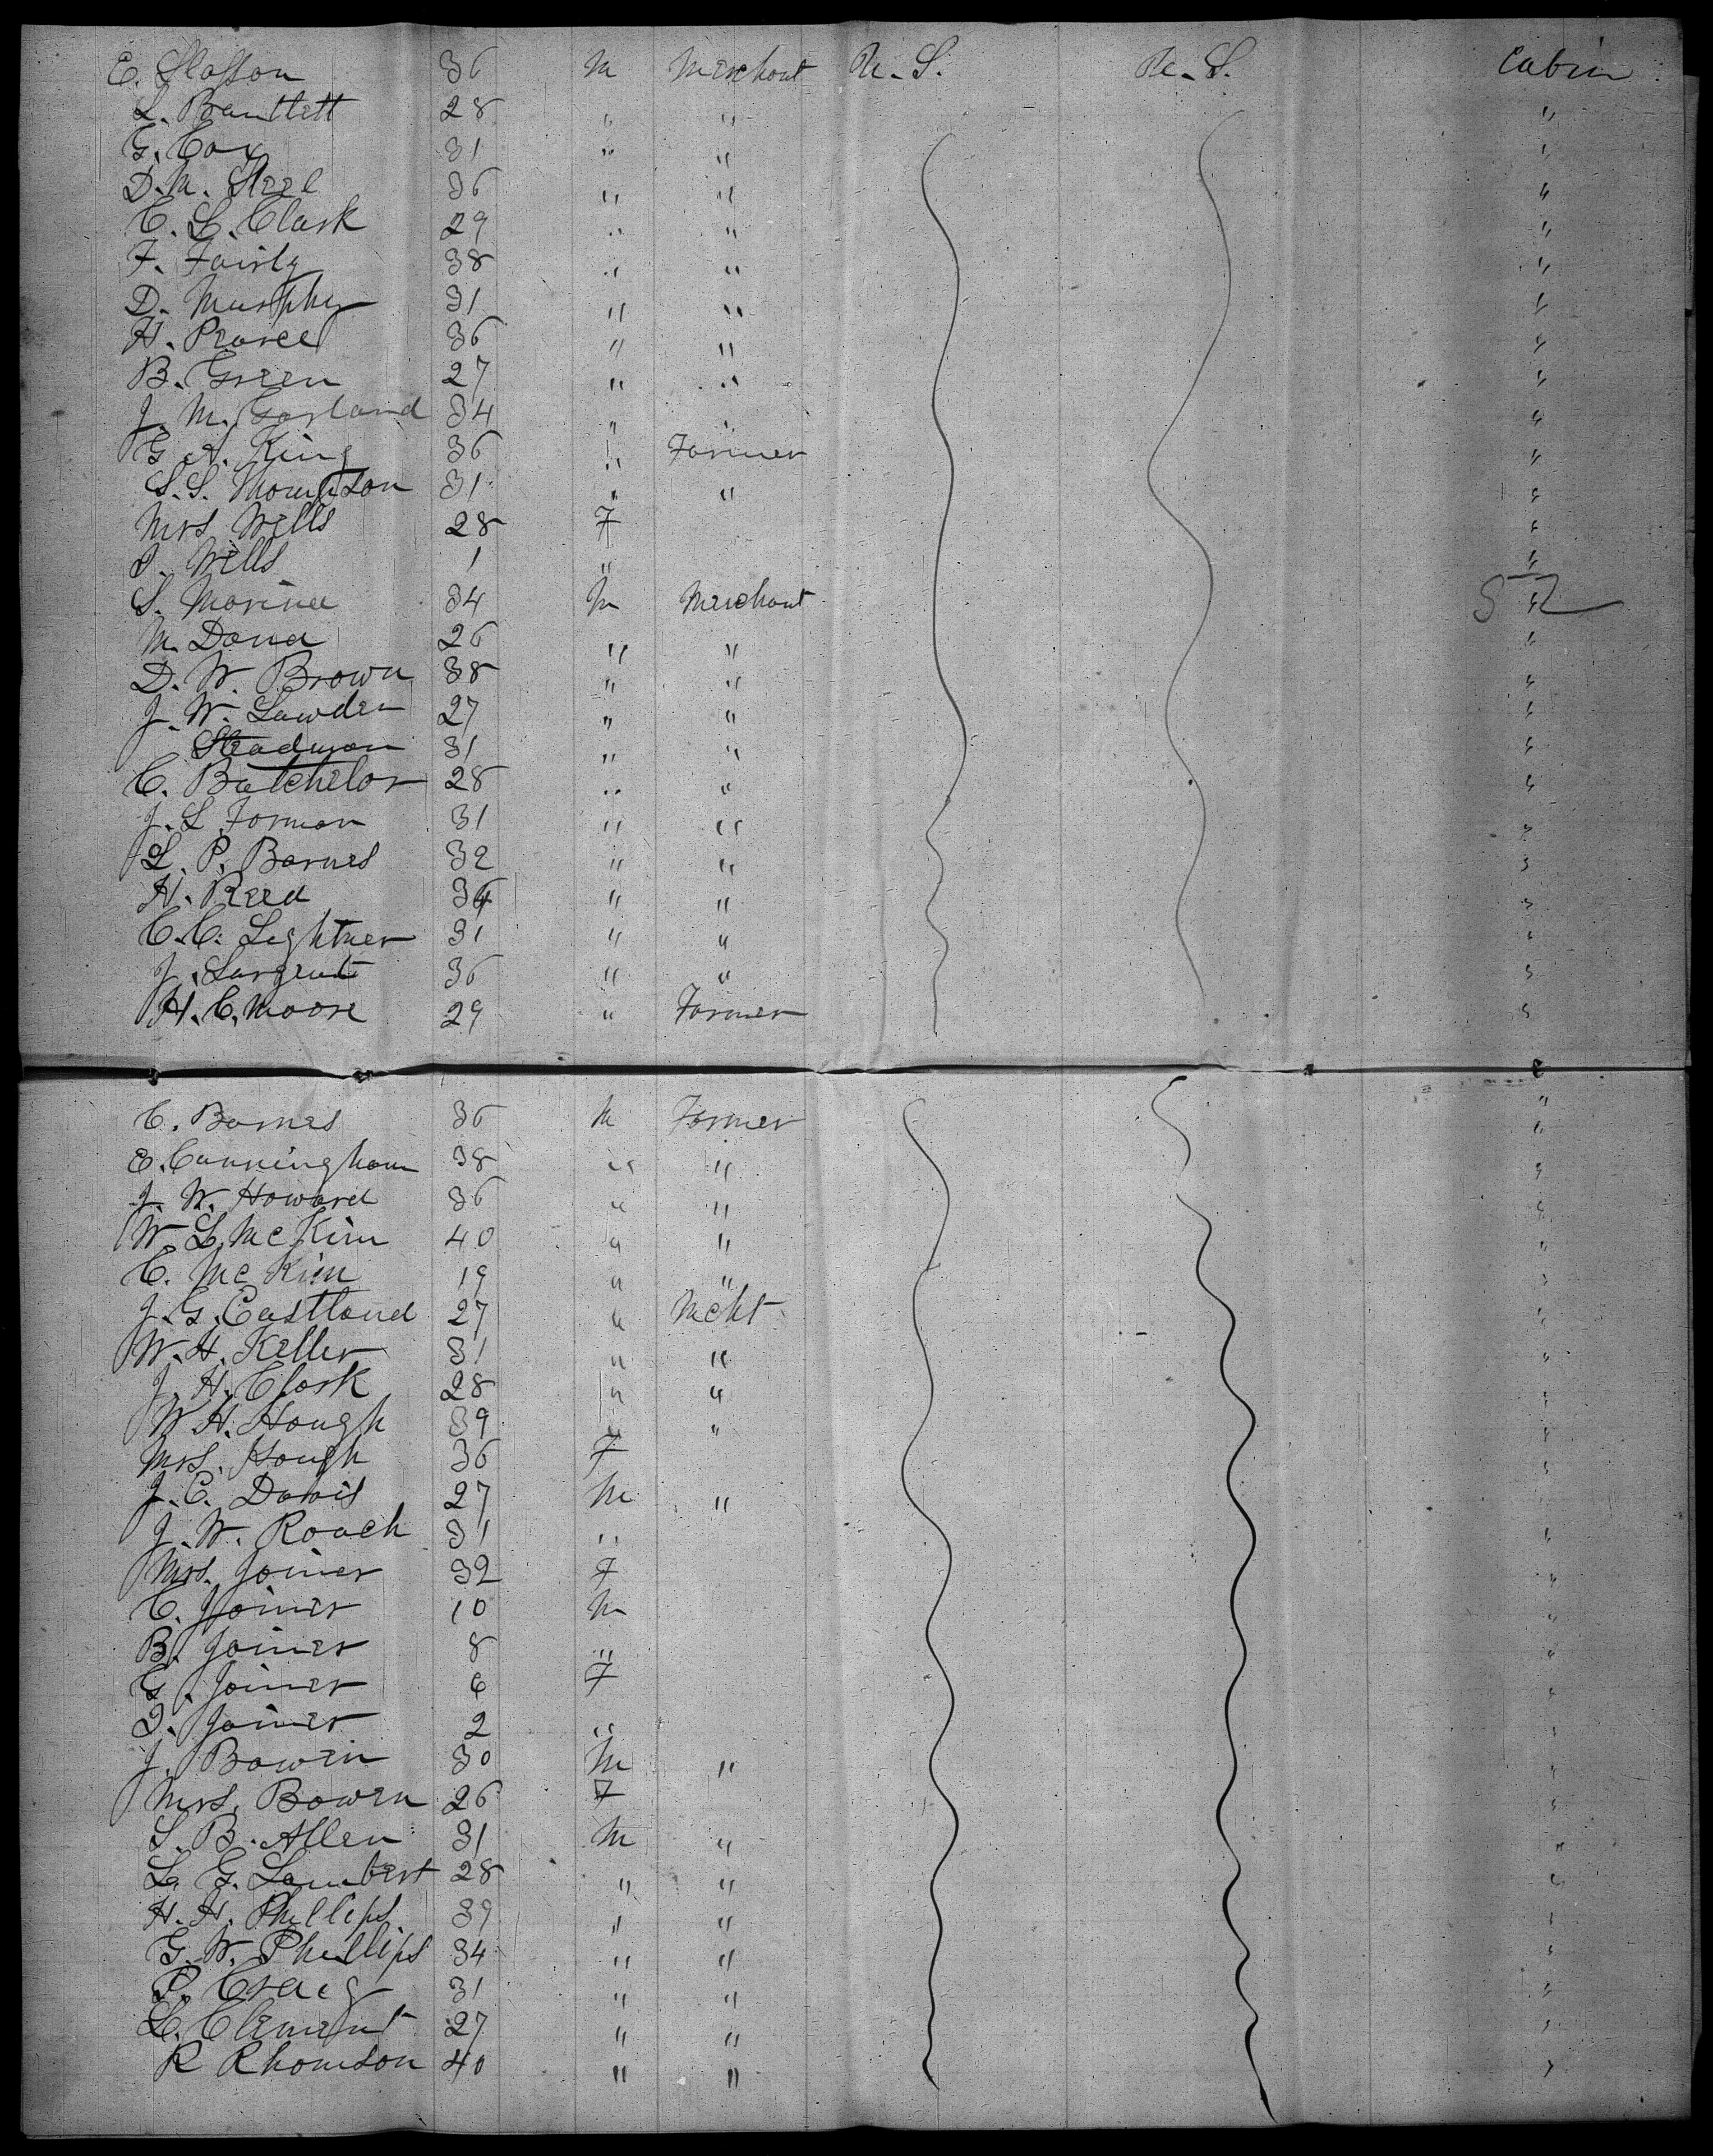 E. Slasson 36 M Merchant U. S. U. S. Cabin
L. Bartlett 28 " " "
G. Cox 31 " " "
D. M. Steel 36 " " "
C. L. Clark 29 " " "
F. Fairly 38 " " "
D. Murphy 31 " " "
H. Pearce 36 " " "
B. Green 27 " " "
J. M. Garland 34 " " "
G. A. King 36 " Farmer "
S. S. Thompson 31 " " "
Mrs Wells 28 F "
I. Wells 1 " "
S. Marinee 34 M Merchant " 52
M. Dana 26 " " "
D. W. Brown 38 " " "
J. W. Lawden 27 " " "
Steadman 31 " " "
C. Batchelor 28 " " "
J. L. Forman 31 " " "
L. P. Barnes 32 " " "
H. Reed 34 " " "
C. C. Lightner 31 " " "
J. Sargent 36 " " "
H. C. Moore 29 " Farmer "
C. Barnes 36 M Farmer "
E. Cunningham 38 " " "
J. W. Howard 36 " " "
W. L. McKim 40 " " "
C. McKim 19 " " "
J. G. Eastland 27 " Mcht "
W. H. Keller 31 " " "
J. H. Clark 28 " " "
W. H. Hough 39 " " "
Mrs. Hough 36 F "
J. C. Davis 27 M " "
J. W. Roach 31 " "
Mrs. Joiner 32 F "
C. Joiner 10 M "
B. Joiner 8 " "
G. Joiner 6 F "
I. Joiner 2 " "
J. Bowen 30 M " "
Mrs. Bowen 26 F "
S. B. Allen 31 M " "
L. G. Lambert 28 " " "
H. H. Phillips 39 " " "
G. W. Phillips 34 " " "
P. Craig 31 " " "
L. Clement 27 " " "
R Rhomson 40 " " "